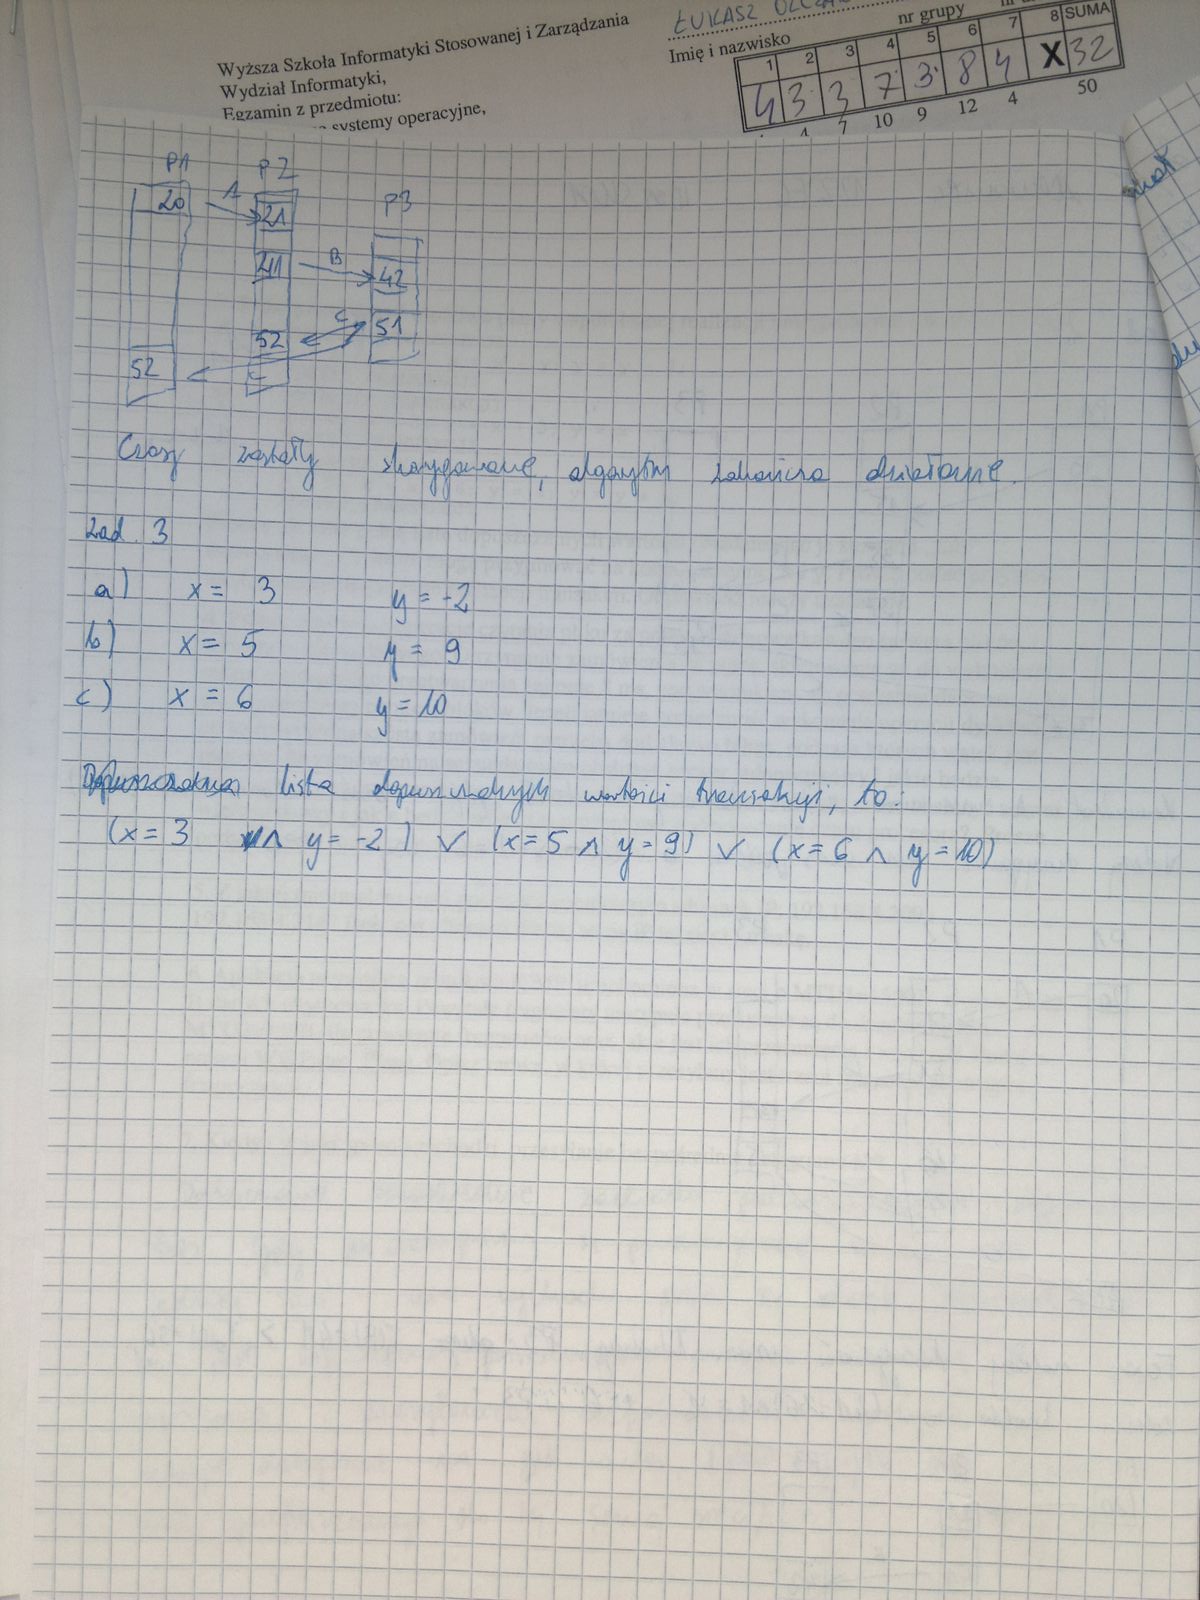 Wyższa Szkoła Informatyki Stosowanej i Zarządzania
Wydział Informatyki,
Egzamin z przedmiotu:
systemy operacyjne,
ŁUKASZ
Imię i nazwisko
nr grupy
1 2 3 4 5 6 7 8 SUMA
4 3 3 7 3 8 4 X 32
4 7 10 9 12 4 50
P1 P2 P3
20 A 21
41 B 42
52 C 51
52
Czasy zostały skorygowane, algorytm zakończa działanie.
Zad. 3
a) x = 3 y = -2
b) x = 5 y = 9
c) x = 6 y = 10
lista dopuszczalnych wartości transakcji, to:
(x = 3 ∧ y = -2) ∨ (x = 5 ∧ y = 9) ∨ (x = 6 ∧ y = 10)